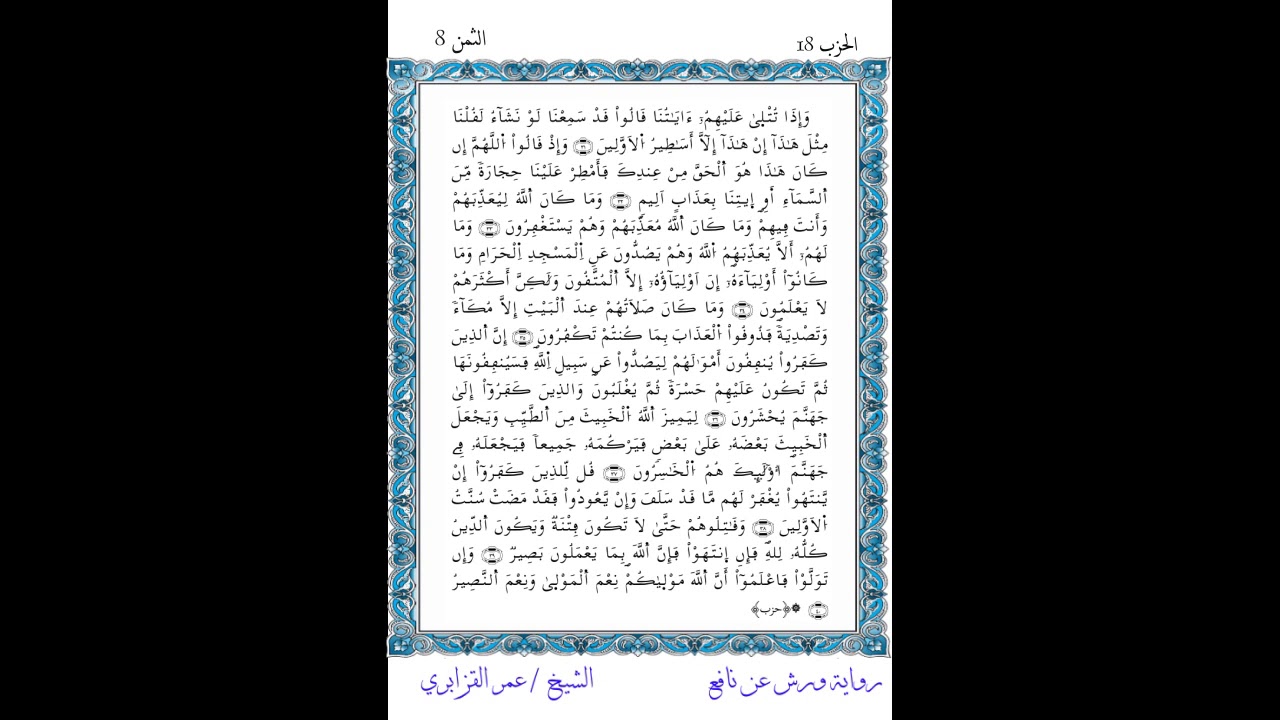 الحزب 18
الثمن 8
وَإِذَا تُتْلٜىٰ عَلَيْهِمُۥٓ ءَايَٰتُنَا قَالُوا۟ قَدْ سَمِعْنَا لَوْ نَشَآءُ لَقُلْنَا
مِثْلَ هَٰذَآ إِنْ هَٰذَآ إِلَّآ أَسَٰطِيرُ اُ۬لَاوَّلِينَ ۝٣١ وَإِذْ قَالُوا۟ اُ۬للَّهُمَّ إِن
كَانَ هَٰذَا هُوَ اَ۬لْحَقَّ مِنْ عِندِكَ فَأَمْطِرْ عَلَيْنَا حِجَارَةٗ مِّنَ
اَ۬لسَّمَآءِ اَوِ إِيتِنَا بِعَذَابٍ اَلِيمٖ ۝٣٢ وَمَا كَانَ اَ۬للَّهُ لِيُعَذِّبَهُمْ
وَأَنتَ فِيهِمْ وَمَا كَانَ اَ۬للَّهُ مُعَذِّبَهُمْ وَهُمْ يَسْتَغْفِرُونَ ۝٣٣ وَمَا
لَهُمُۥٓ أَلَّا يُعَذِّبَهُمُ اُ۬للَّهُ وَهُمْ يَصُدُّونَ عَنِ اِ۬لْمَسْجِدِ اِ۬لْحَرَامِ وَمَا
كَانُوٓا۟ أَوْلِيَآءَهُۥٓ إِنَ اَوْلِيَآؤُهُۥٓ إِلَّا اَ۬لْمُتَّقُونَ وَلَٰكِنَّ أَكْثَرَهُمْ
لَا يَعْلَمُونَ ۝٣٤ وَمَا كَانَ صَلَاتُهُمْ عِندَ اَ۬لْبَيْتِ إِلَّا مُكَآءٗ
وَتَصْدِيَةٗ فَذُوقُوا۟ اُ۬لْعَذَابَ بِمَا كُنتُمْ تَكْفُرُونَ ۝٣٥ إِنَّ اَ۬لذِينَ
كَفَرُوا۟ يُنفِقُونَ أَمْوَٰلَهُمْ لِيَصُدُّوا۟ عَن سَبِيلِ اِ۬للَّهِ فَسَيُنفِقُونَهَا
ثُمَّ تَكُونُ عَلَيْهِمْ حَسْرَةٗ ثُمَّ يُغْلَبُونَ وَالذِينَ كَفَرُوٓا۟ إِلَىٰ
جَهَنَّمَ يُحْشَرُونَ ۝٣٦ لِيَمِيزَ اَ۬للَّهُ اُ۬لْخَبِيثَ مِنَ اَ۬لطَّيِّبِ وَيَجْعَلَ
اَ۬لْخَبِيثَ بَعْضَهُۥ عَلَىٰ بَعْضٖ فَيَرْكُمَهُۥ جَمِيعاٗ فَيَجْعَلَهُۥ فِي
جَهَنَّمَ أُوْلَٰٓئِكَ هُمُ اُ۬لْخَٰسِرُونَ ۝٣٧ قُل لِّلذِينَ كَفَرُوٓا۟ إِنْ
يَّنتَهُوا۟ يُغْفَرْ لَهُم مَّا قَدْ سَلَفَ وَإِنْ يَّعُودُوا۟ فَقَدْ مَضَتْ سُنَّتُ
اُ۬لَاوَّلِينَ ۝٣٨ وَقَٰتِلُوهُمْ حَتَّىٰ لَا تَكُونَ فِتْنَةٞ وَيَكُونَ اَ۬لدِّينُ
كُلُّهُۥ لِلهِ فَإِنِ اِ۪نتَهَوْا۟ فَإِنَّ اَ۬للَّهَ بِمَا يَعْمَلُونَ بَصِيرٞ ۝٣٩ وَإِن
تَوَلَّوْا۟ فَاعْلَمُوٓا۟ أَنَّ اَ۬للَّهَ مَوْلٜىٰكُمْ نِعْمَ اَ۬لْمَوْلٜىٰ وَنِعْمَ اَ۬لنَّصِيرُ
۝٤٠ ۞ ﴿حزب﴾
رواية ورش عن نافع
الشيخ / عمر القزابري